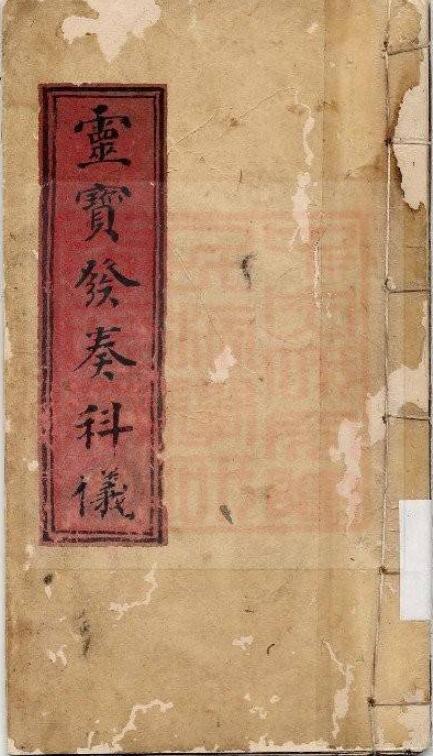 靈寶發奏科儀